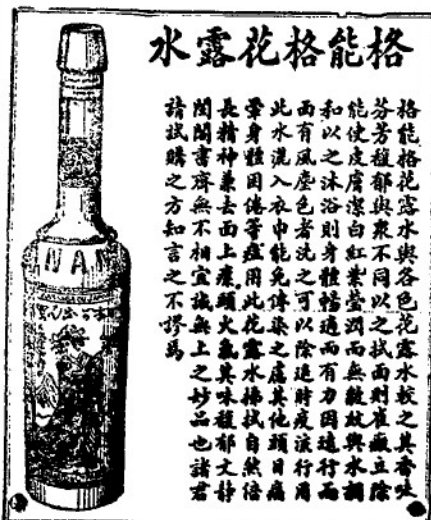 格能格花露水
格能格花露水與各色花露水較之其香味
芬芳馥郁與衆不同以之拭面則雀癍立除
能使皮膚潔白紅紫瑩潤而無皺紋與水調
和以之沐浴則身體暢適而有力因遠行而
面有風塵色者洗之可以除退時疫流行用
此水洒入衣巾能免傳染之虞其他頭目痛
暈身體困倦等症用此花露水揩拭自然倍
長精神兼去面上瘰頭火氣其味馥郁文靜
閨閣書齋無不相宜誠無上之妙品也諸君
請試購之方知言之不謬焉
NAN